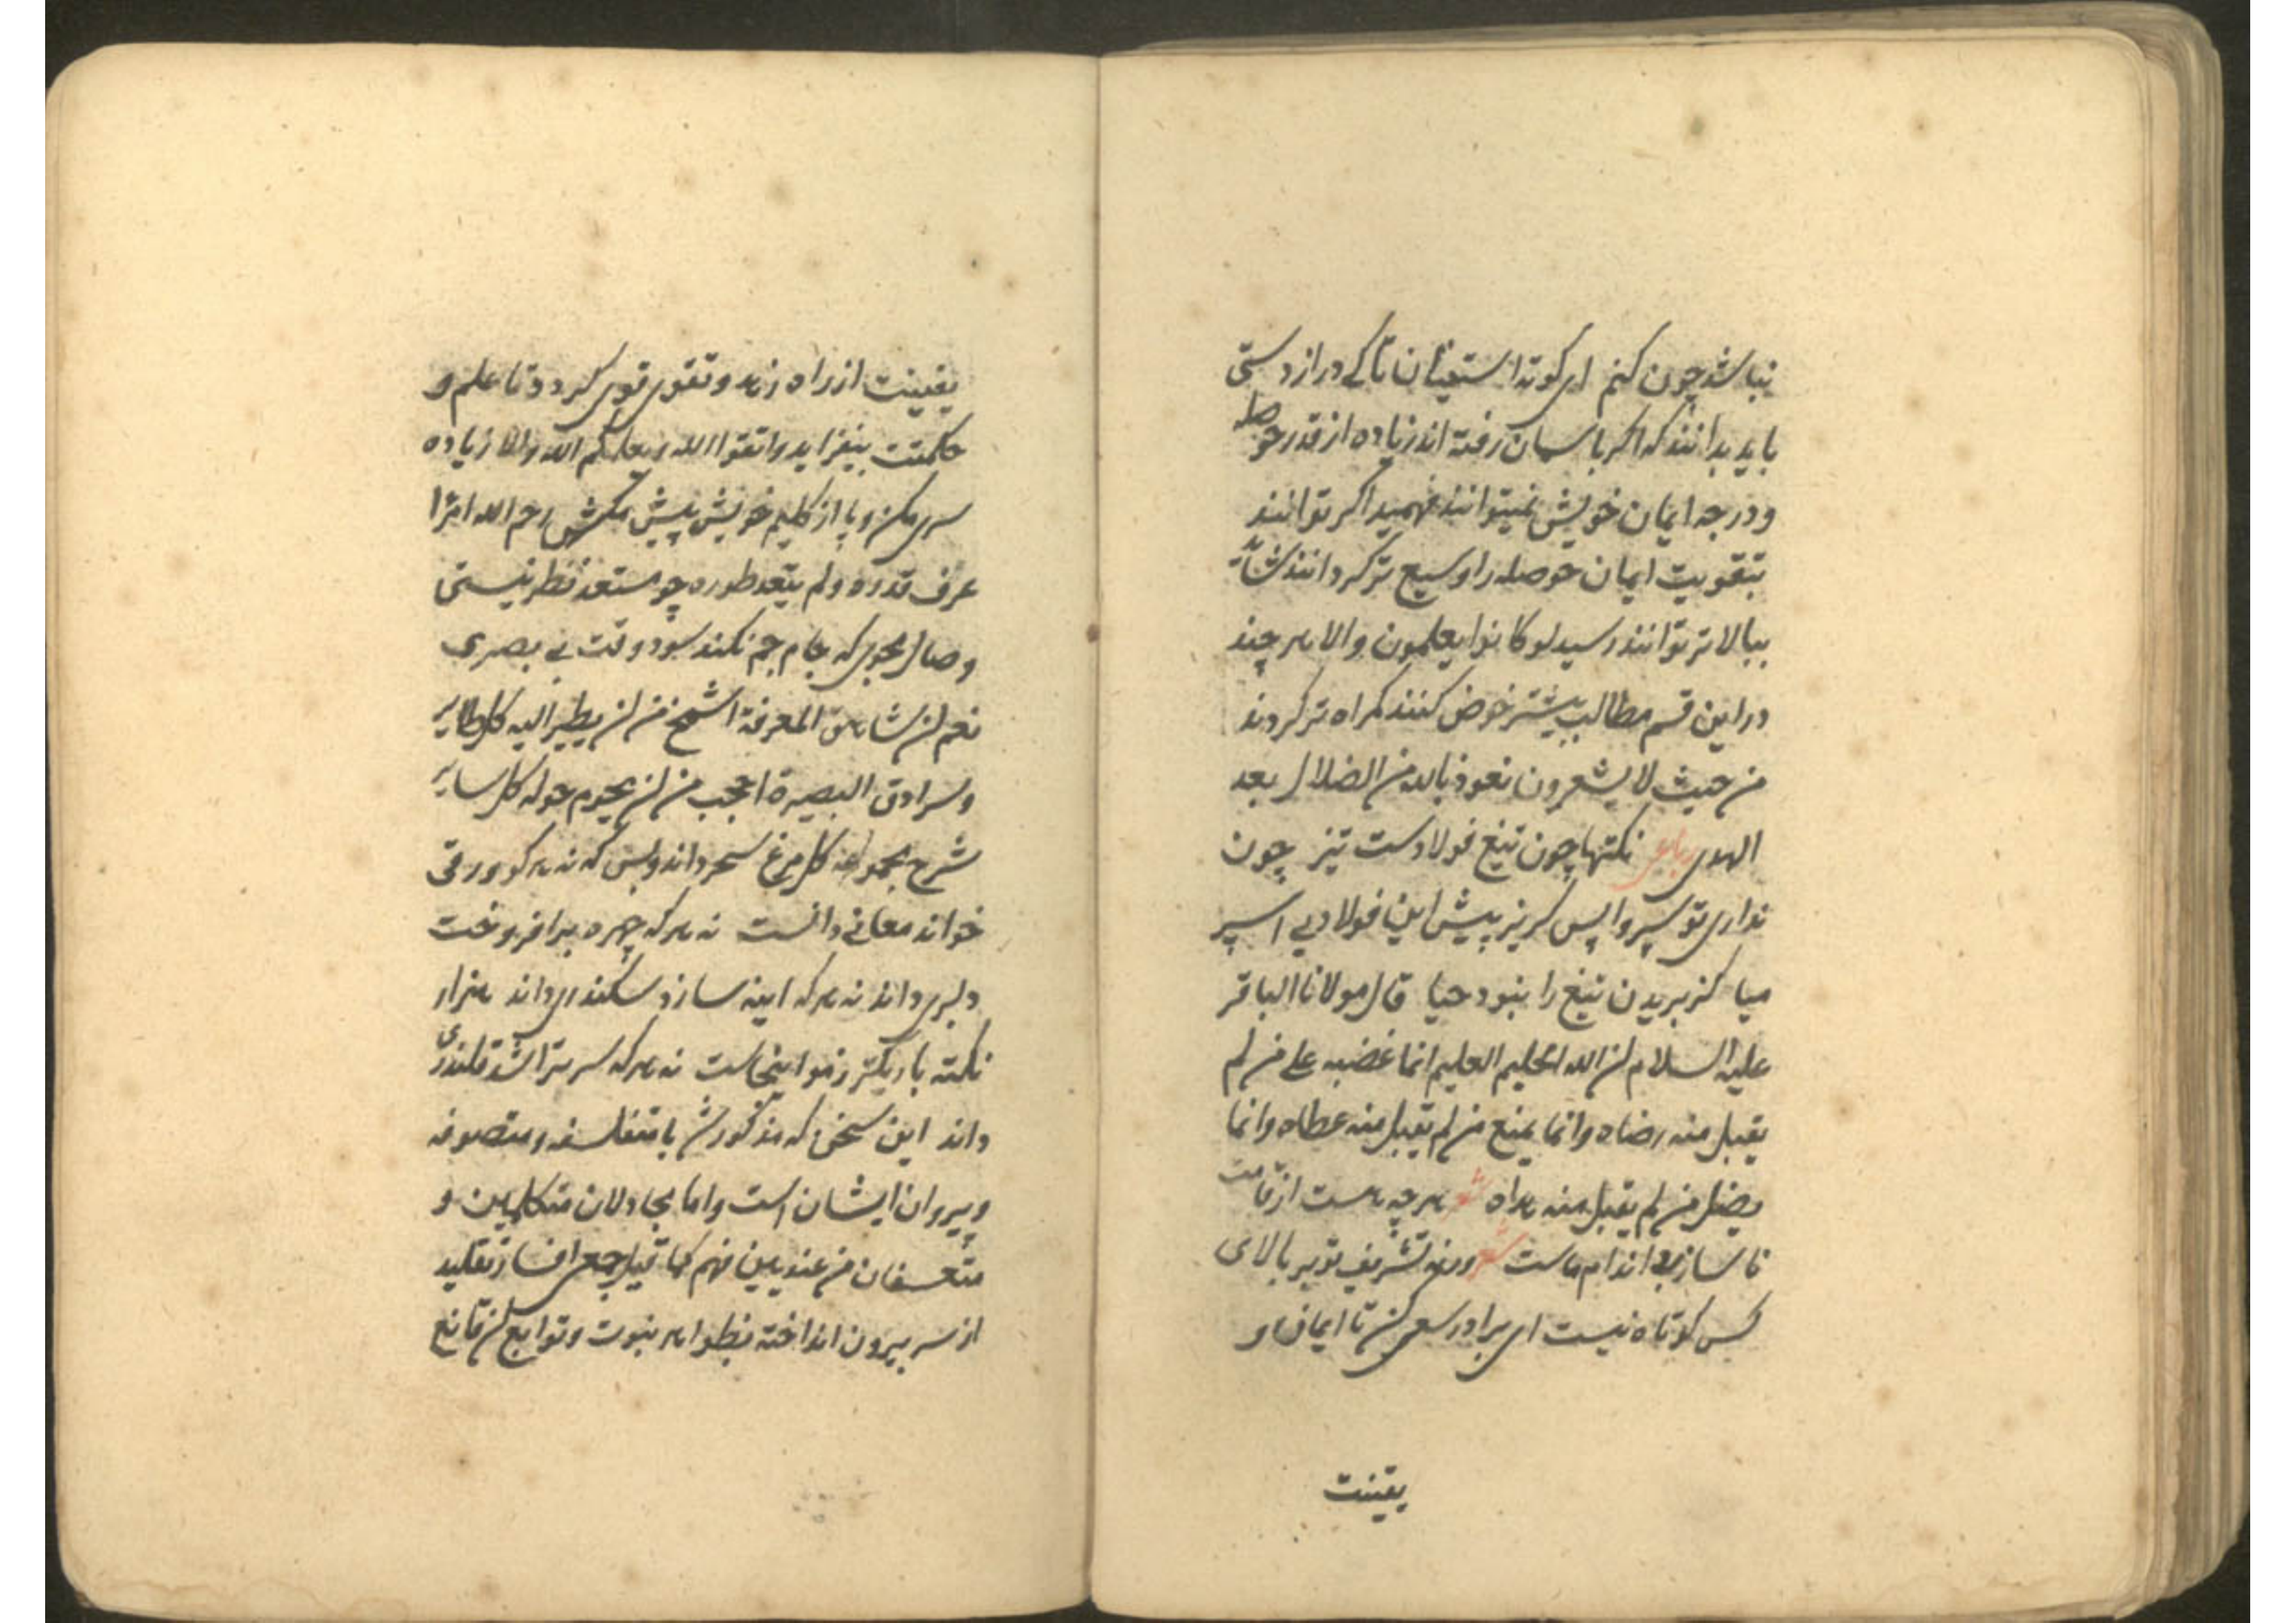 نباشد چون کنم ای کوته استینان تا کی دراز دستی
باید بدانند که اکر باسمان رفته اند زیاده از قدر حوصله
و درجه ایمان خویش نمیتوانند فهمید اکر توانند
بتقویت ایمان حوصله را وسیع تر کردانند شاید
ببالاتر توانند رسید لو کانوا یعلمون والا هر چند
در این قسم مطالب بیشتر خوض کنند کمراه تر کردند
من حیث لا یشعرون نعوذ بالله من الضلال بعد
الهدی رباعی نکتها چون تیغ فولادست تیز چون
نداری تو سپر واپس کریز پیش این فولاد بی اسپر
میا کز بریدن تیغ را نبود حیا قال مولانا الباقر
علیه السلام ان الله الحلیم العلیم انما غضبه علی من لم
یقبل منه رضاه وانما یمنع من لم یقبل منه عطاه وانما
یضل من لم یقبل منه هداه شعر هر چه هست از قامت
ناساز بی اندام ماست شعر ورنه تشریف تو بر بالای
کس کوتاه نیست ای برادر سعی کن تا ایمان و
یقینت
یقینت از راه زهد و تقوی قوی کردد تا علم و
حکمتت بیفزاید واتقوا الله ویعلمکم الله والا زیاده
سری مکن و پا از کلیم خویش پیش مکش رحم الله امرا
عرف قدره ولم یتعد طوره چو مستعد نظر نیستی
وصال مجوی که جام جم نکند سود وقت بی بصری
نعم ان شاهق المعرفة اشمخ من ان یطیر الیه کل طایر
وسرادق البصیرة احجب من ان یحوم حوله کل سایر
شرح مجموعه کل مرغ سحر داند و بس که نه هر کو ورقی
خواند معانی دانست نه هر که چهره برافروخت
دلبری داند نه هر که اینه سازد سکندری داند هزار
نکته باریکتر زمو اینجاست نه هر که سر بتراشد قلندری
داند این سخن که مذکور شد با متفلسفه و متصوفه
و پیروان ایشان است واما مجادلان متکلمین و
متعسفان من عندیین فهم کما قیل جمعی افسار تقلید
از سر بیرون انداخته بظواهر نبوت و توابع ان قانع